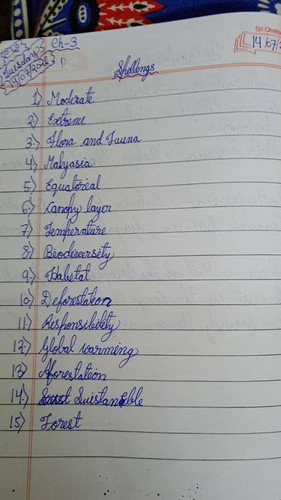 Ch-3
14/07/
Tuesday
Shellings
1) Moderate
2) Extreme
3) Flora and Fauna
4) Malyasia
5) Equatorial
6) Canopy layer
7) Temperature
8) Biodiversity
9) Habitat
10) Deforestation
11) Responsibility
12) Global warming
13) Aforestation
14) Suistainable
15) Forest